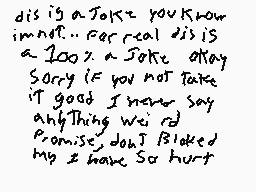 dis is a Joke you know
im not... For real dis is
a 100% a Joke okay
Sorry if you not take
it good I never say
anything weird
Promise, dont Bloked
my I have So hurt